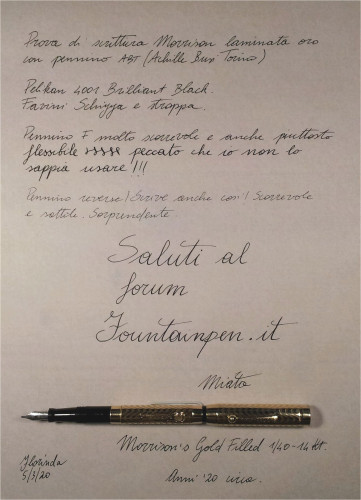 Prova di scrittura Morrison laminata oro
con pennino ABT (Achille Bus Torino)
Pelikan 4001 Brilliant Black.
Favini Schizza e strappa.
Pennino F molto scorrevole e anche piuttosto
flessibile peccato che io non lo
sappia usare!!!
Pennino reverse! Scrive anche così! Scorrevole
e sottile. Sorprendente.
Saluti al
forum
Fountainpen.it
Miata
Morrison's Gold Filled 1/40-14 Kt.
Florinda
5/3/20
Anni '20 circa.